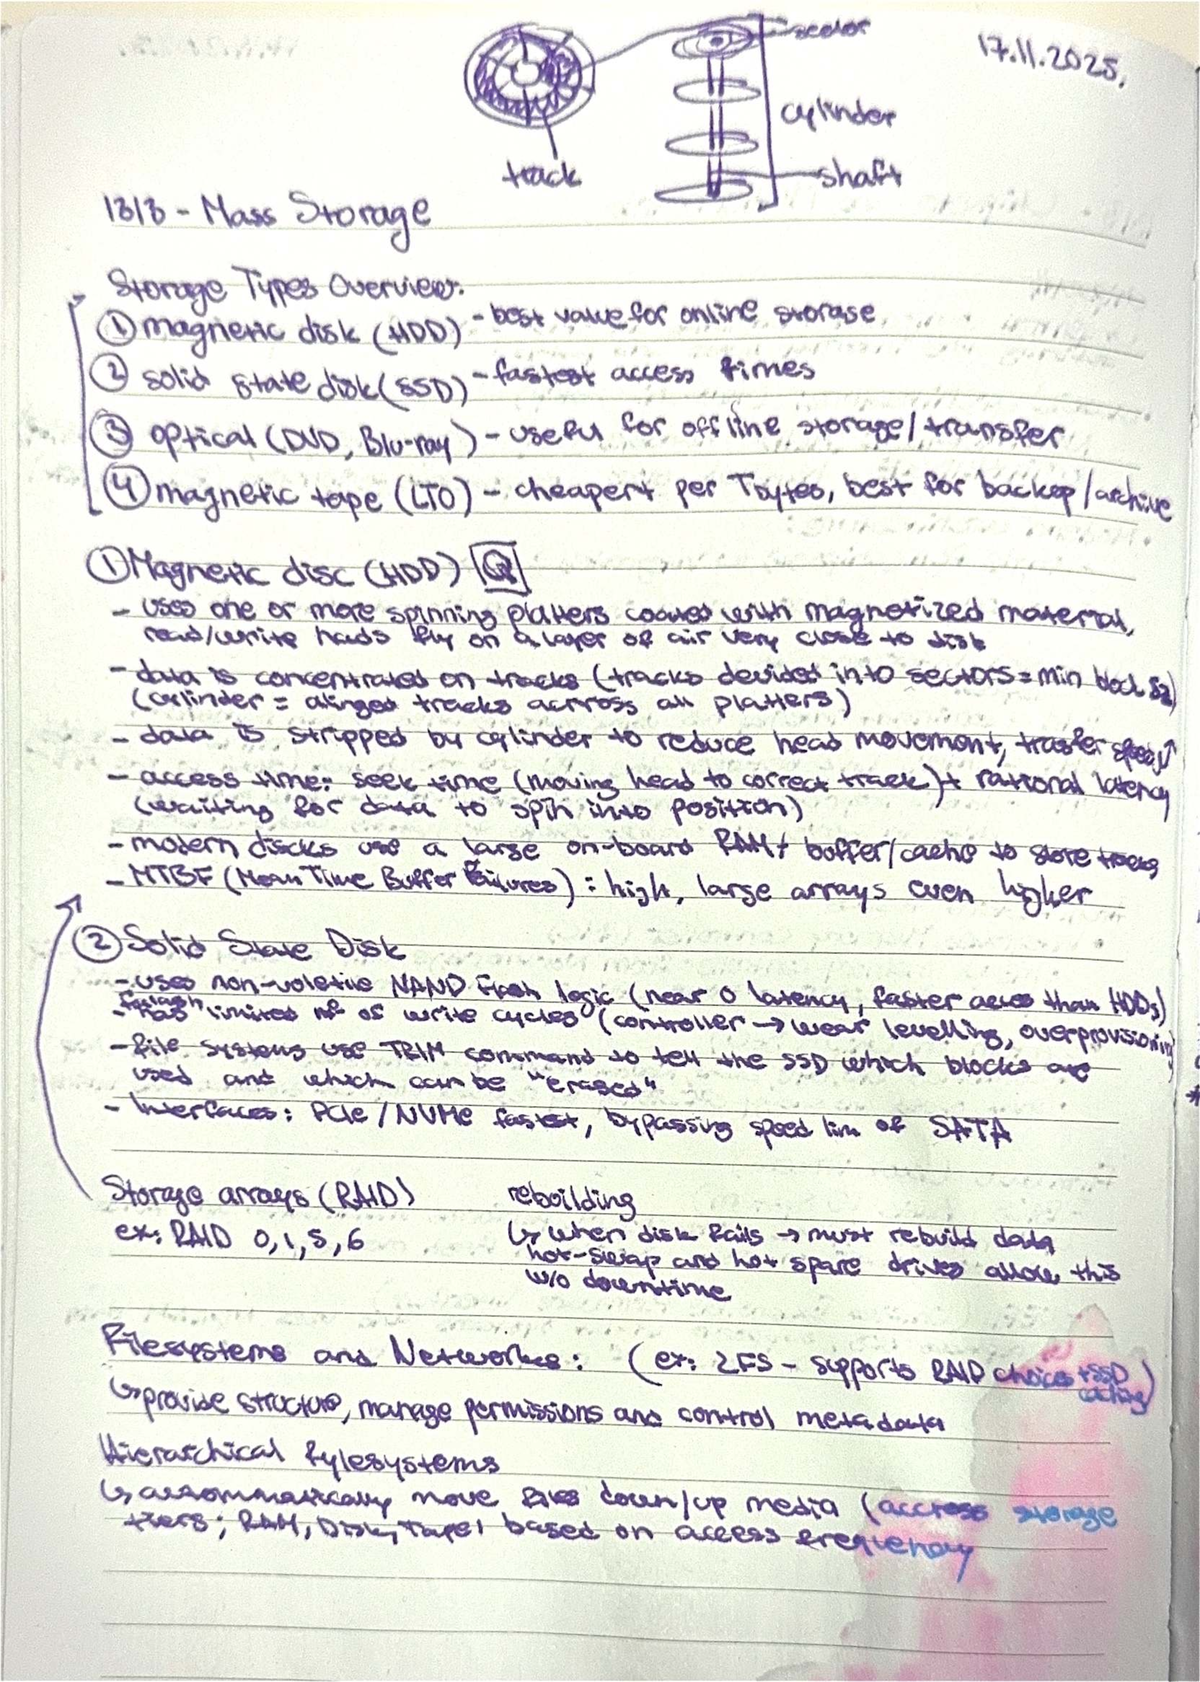 sector
17.11.2025.
cylinder
track
shaft
13/3 - Mass Storage
Storage Types Overview:
① magnetic disk (HDD) - best value for online storage
② solid state disk (SSD) - fastest access times
③ optical (DVD, Blu-ray) - useful for offline storage/transfer
④ magnetic tape (LTO) - cheapert per Tbytes, best for backup/archive
① Magnetic disc (HDD) Q
- uses one or more spinning platters coated with magnetized material,
read/write heads fly on a layer of air very close to disk
- data is concentrated on tracks (tracks devided into sectors = min block sz)
(cylinder = alinged tracks accross all platters)
- data is stripped by cylinder to reduce head movement, trasfer speed↑
- access time: seek time (moving head to correct track) + rational latency
(waiting for data to spin into position)
- modern discks use a large on-board RAM + buffer/cache to store tracks
- MTBF (Mean Time Buffer Failures) : high, large arrays even higher
② Solid State Disk
- uses non-voletile NAND flash logic (near 0 latency, faster acces than HDDs)
- flash has limited nº of write cycles (controller → wear levelling, overprovisioning)
- file systems use TRIM command to tell the SSD which blocks are
used and which can be "erased"
- Interfaces: PCIe / NVMe fastest, bypassing speed lim of SATA
Storage arrays (RAID)
ex: RAID 0, 1, 5, 6
rebuilding
↳ when disk fails → must rebuild data
hot-swap and hot spare drives allow this
w/o downtime
Filesystems and Networks: (ex: ZFS - supports RAID choices + SSD
caching)
↳ provide structure, manage permissions and control metadata
Hierarchical fylesystems
↳ autommatically move files down/up media (accross storage
tiers; RAM, Disk, Tape) based on access frequency